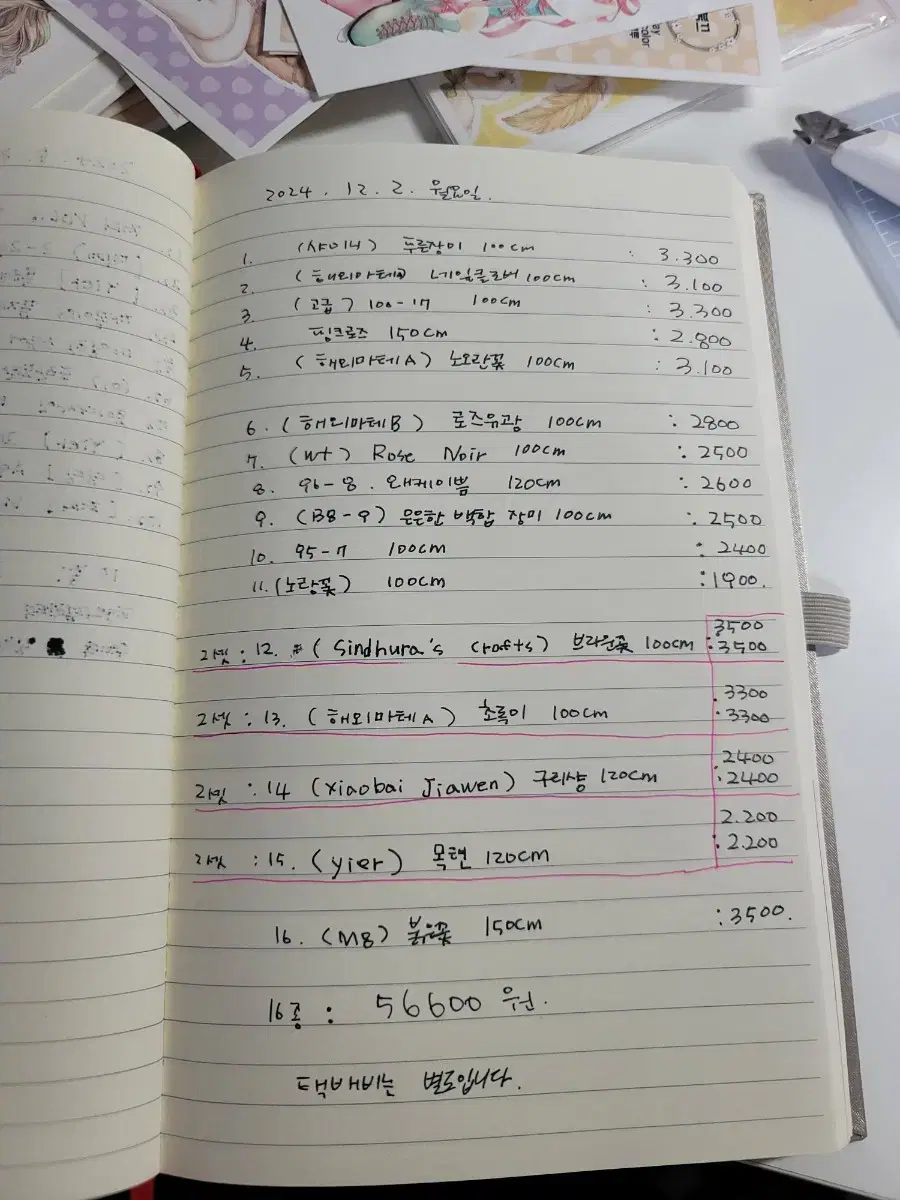 2024. 12. 2. 월요일.
1. (샤이니) 푸른장미 100cm : 3.300
2. (해외마테) 네잎클로버 100cm : 3.100
3. (고급) 100-17 100cm : 3.300
4. 핑크로즈 150cm : 2.800
5. (해외마테A) 노오란꽃 100cm : 3.100
6. (해외마테B) 로즈유광 100cm : 2800
7. (wt) Rose Noir 100cm : 2500
8. 96-8. 왜케이쁨 120cm : 2600
9. (B8-9) 은은한 백합 장미 100cm : 2500
10. 95-7 100cm : 2400
11. (노랑꽃) 100cm : 1900.
3500
2셋 : 12. (Sindhura's crafts) 브라운꽃 100cm : 3500
3300
2셋 : 13. (해외마테A) 초록이 100cm : 3300
2400
2셋 : 14 (xiaobai Jiawen) 구리샹 120cm : 2400
2.200
2셋 : 15. (yier) 목련 120cm : 2.200
16. (M8) 붉은꽃 150cm : 3500.
16종 : 56600 원.
택배비는 별로입니다.